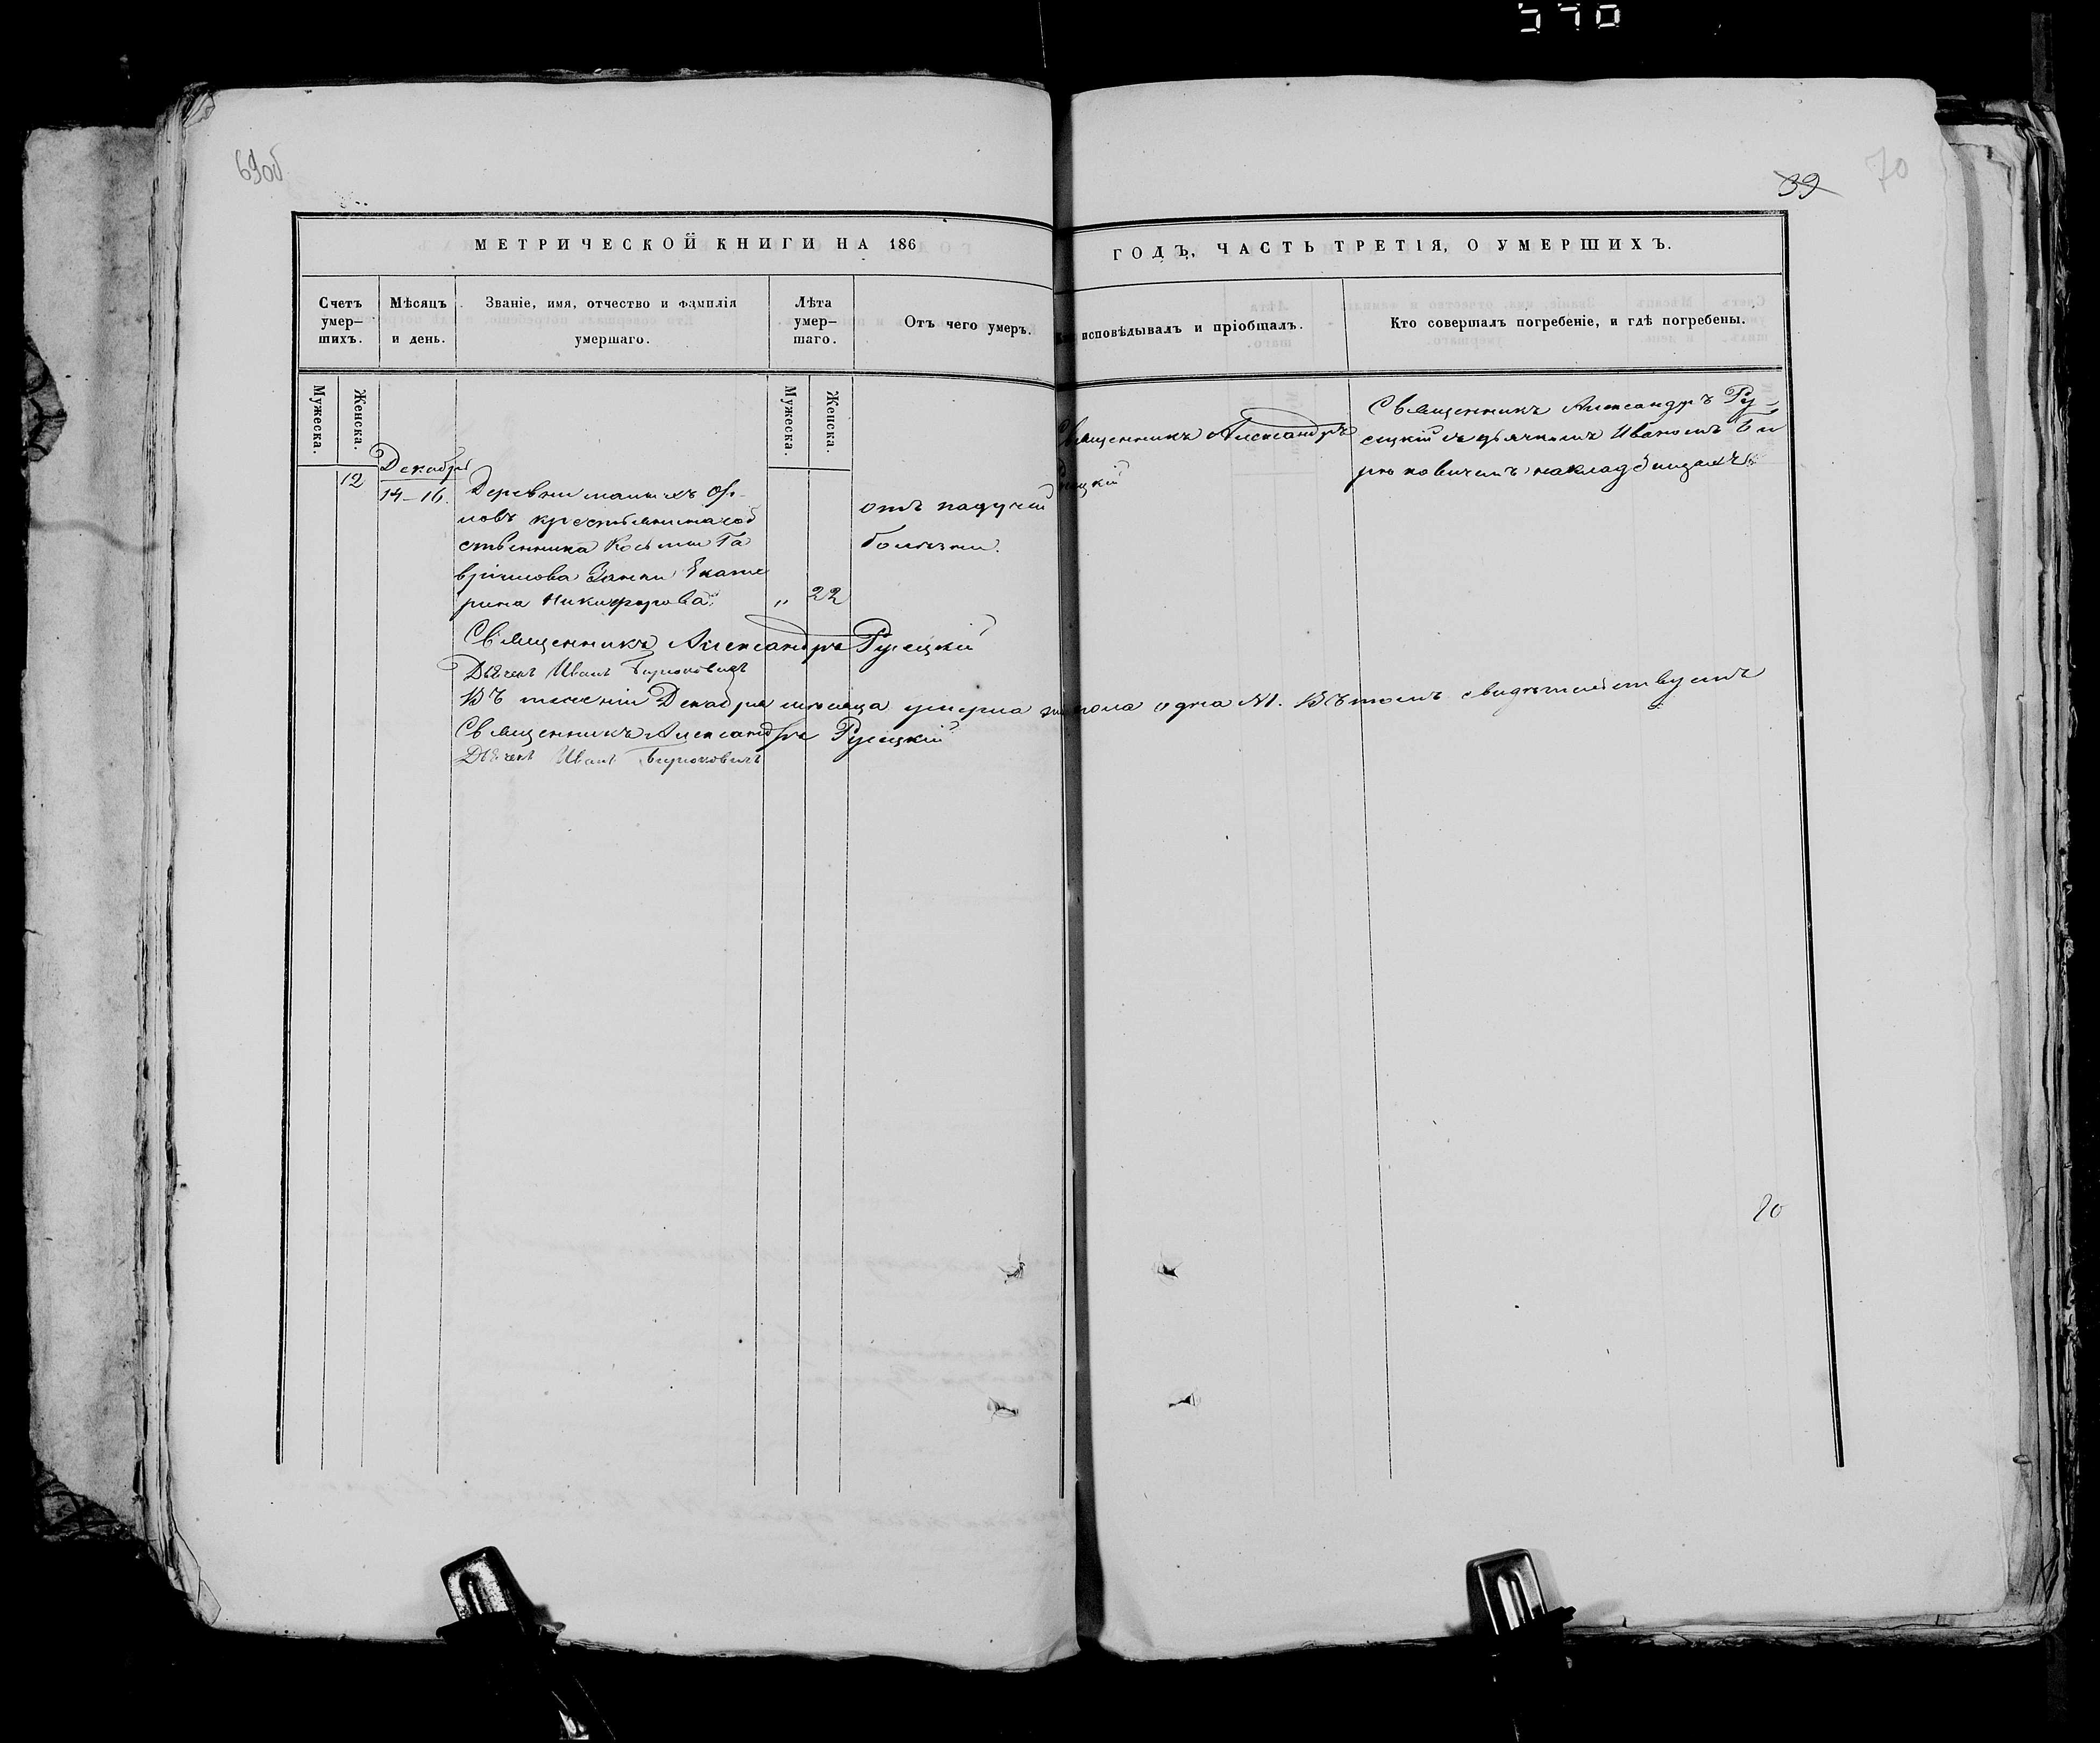 570
69об
39
70
МЕТРИЧЕСКОЙ КНИГИ НА 186
ГОДЪ, ЧАСТЬ ТРЕТІЯ, О УМЕРШИХЪ.
Счетъ умер-шихъ.
Мѣсяцъ и день.
Званіе, имя, отчество и фамилія умершаго.
Лѣта умер-шаго.
Отъ чего умеръ.
исповѣдывалъ и пріобщалъ.
Кто совершалъ погребеніе, и гдѣ погребены.
Мужеска.
Женска.
Мужеска.
Женска.
12
Декабрь
14-16.
Деревни
новъ крестьянина соб
ственника Косьмы Га
врiилова жена Екате
рина Никифорова.
„ 22
отъ падучей
болѣзни.
Священникъ Александръ
Священникъ Александръ Ру-
сецкій съ дьячкомъ Иваномъ Би
рюковичемъ на кладбищахъ.
Священникъ Александръ Русецкій
Дьячекъ Иванъ Бирюковичъ
Въ теченіи Декабря мѣсяца умерла пола одна №1. Въ томъ свидѣтельствуемъ
Священникъ Александръ Русецкій
Дьячекъ Иванъ Бирюковичъ
70